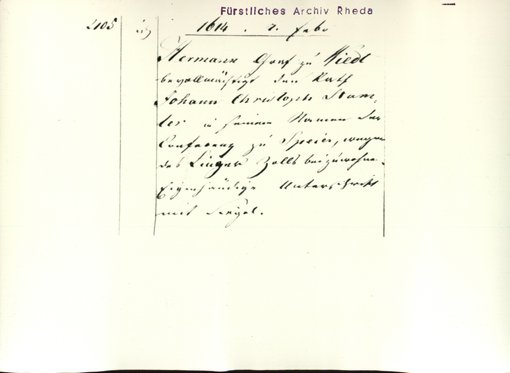 Fürstliches Archiv Rheda
2105
1614. 7. Febr
Hermann Graf zu Wied
bevollmächtigt den Rath
Johann Christoph
in seinem Namen der
Conferenz zu Speier, wegen
des Linger Zolls beizuwohnen.
Eigenhändige Unterschrift
mit Siegel.